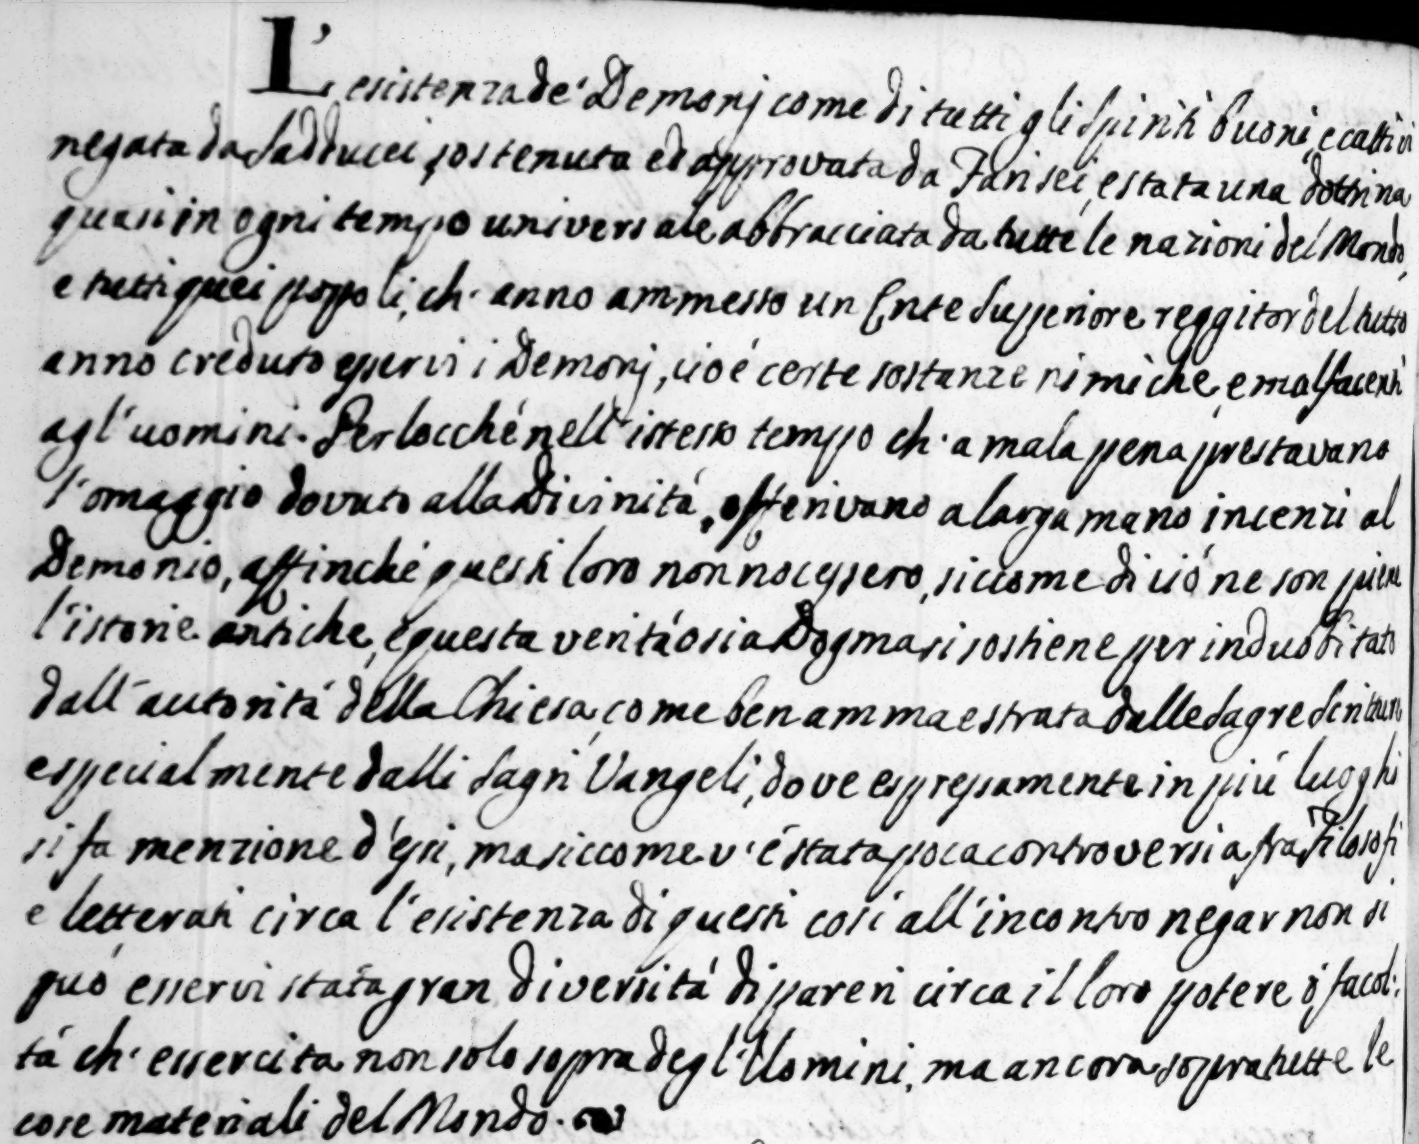 L'esistenza de' Demonj come di tutti gli Spiriti buoni, e cattivi
negata da Sadducei, sostenuta ed approvata da Farisei, è stata una dottrina
quasi in ogni tempo universale abbracciata da tutte le nazioni del Mondo,
e tutti quei popoli, ch' anno ammesso un Ente Superiore reggitor del tutto
anno creduto esservi i Demonj, cioé certe sostanze nimiche, e malfacenti
agl'uomini. Perlocché nell'istesso tempo ch' a mala pena prestavano
l'omaggio dovuto alla Divinitá, offerivano a larga mano incenzi al
Demonio, affinché questi loro non nocessero, siccome di ció ne son piene
l'istorie antiche, e questa veritá o sia Dogma si sostiene per indubbitato
dall'autoritá della Chiesa, come ben ammaestrata dalle Sagre Scritture
especialmente dalli Sagri Vangeli, dove espressamente in piú luoghi
si fa menzione d'essi, ma siccome v'é stata poca controversia fra Filosofi
e letterati circa l'esistenza di questi cosí all'incontro negar non si
puó esservi stata gran diversitá di pareri circa il loro potere ó facol:
tá ch' essercita non solo sopra degl'Uomini, ma ancora sopra tutte le
cose materiali del Mondo.